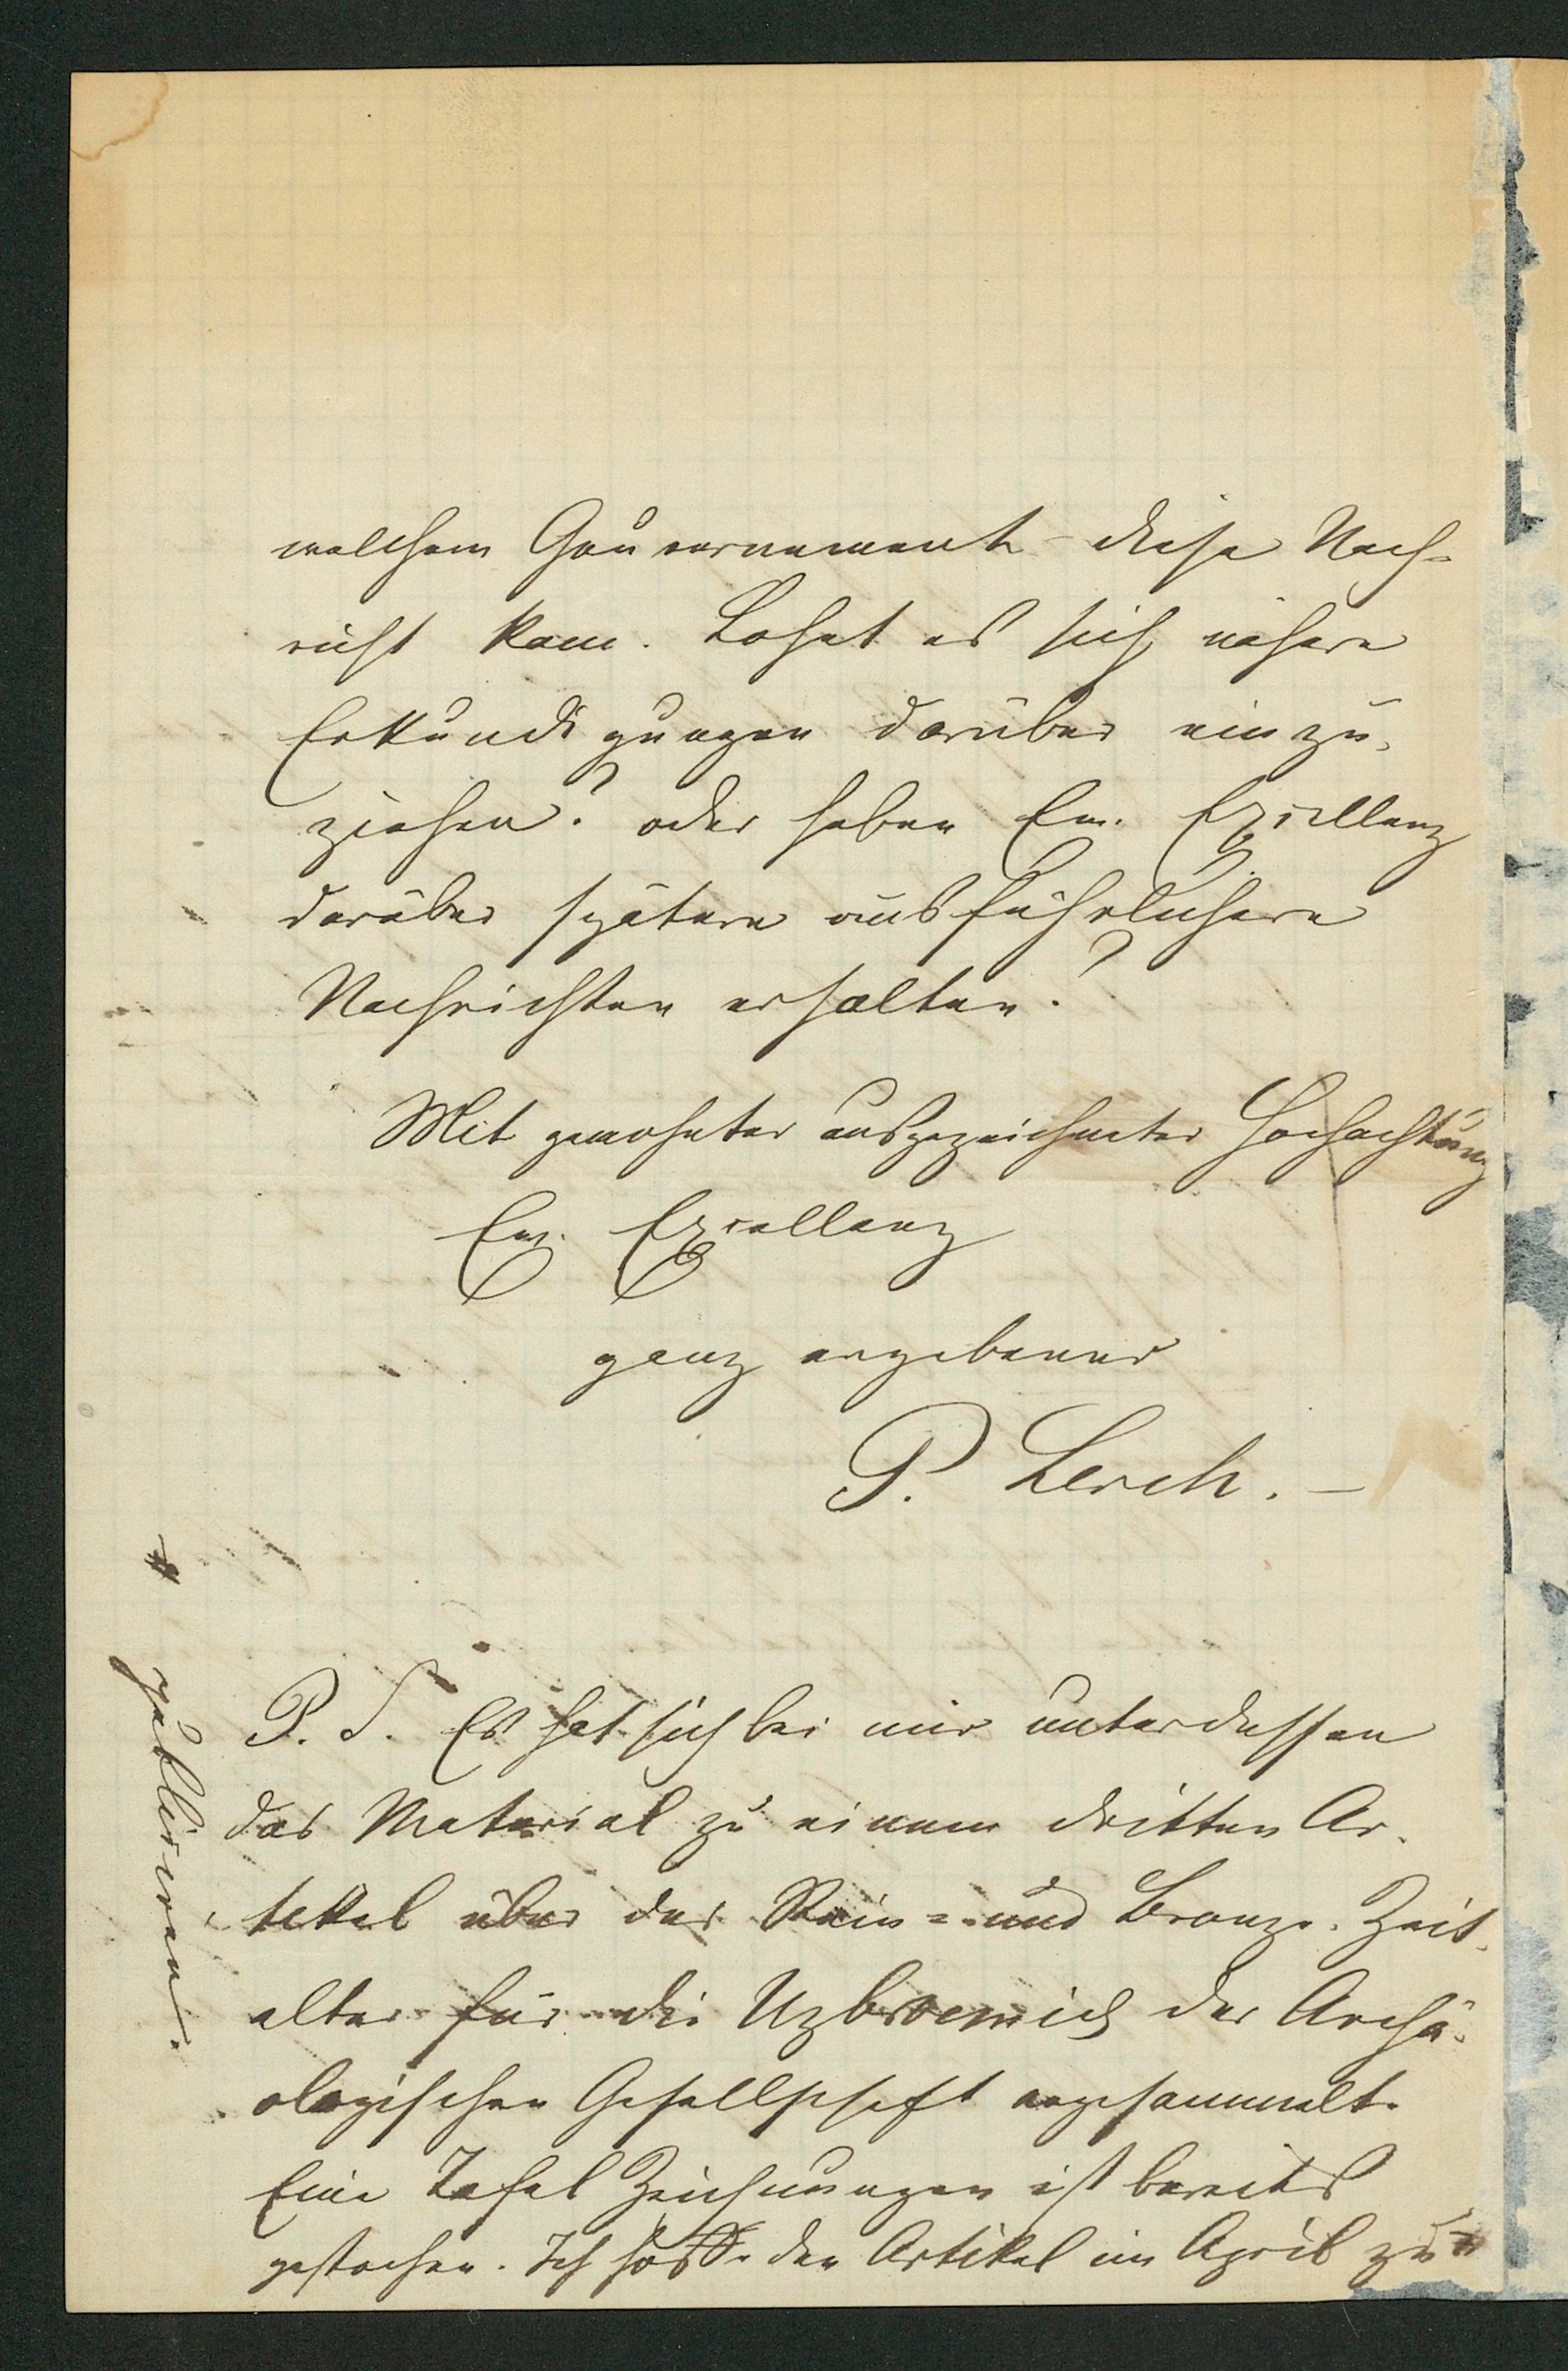 welchem Gouvernement diese Nach-
richt kam. Lohnt es sich nähere
Erkundigungen darüber einzu-
ziehen? oder haben Ew. Exzellenz
darüber spätere ausführlichere
Nachrichten erhalten?
Mit gewohnter ausgezeichneter Hochachtung
Ew. Excellenz
ganz ergebener
P. Lerch. –
P. S. Es hat sich bei mir unterdessen
das Material zu einem dritten Ar-
tikel über das Stein- und Bronze-Zeit-
alter für die der Archä-
ologischen Gesellschaft angesammelt.
Eine Tafel Zeichnungen ist bereits
gestochen. Ich hoffe den Artikel im April zu *
* publiciren.